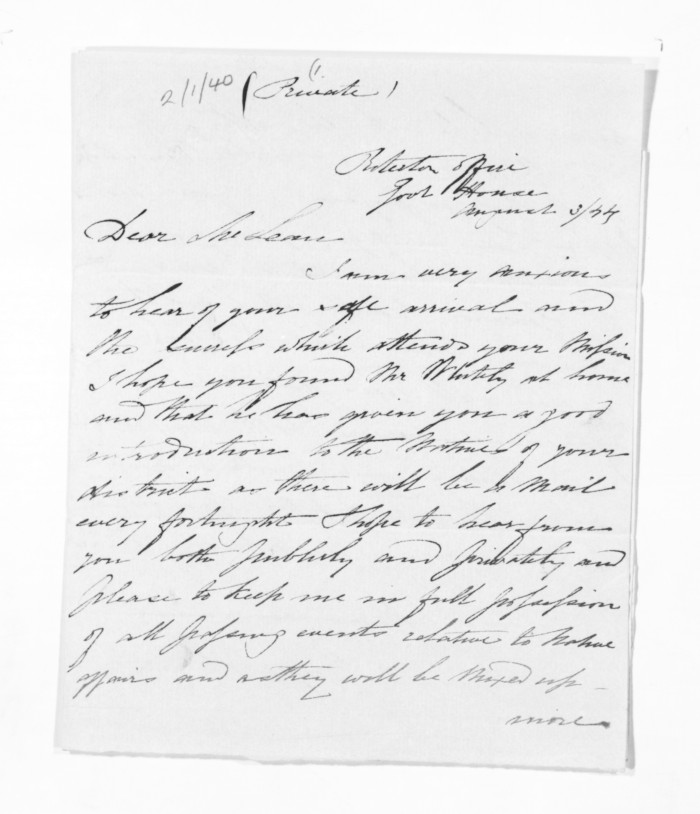 2/1/40 (Private)
Protector Office
Govt House
August 3/44
Dear McLean
I am very anxious
to hear of your safe arrival and
the success which attends your Mission
I hope you found Mr Whitely at home
and that he has given you a good
introduction to the Natives of your
district as there will be a Mail
every fortnight I hope to hear from
you both publicly and privately and
please to keep me in full possession
of all passing events relative to Native
affairs and as they will be mixed up
more